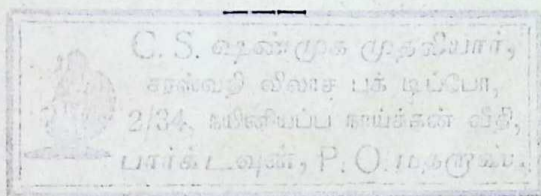 C. S. ஷண்முக முதலியார்,
சரஸ்வதி விலாச புக் டிப்போ,
2/34, நயினியப்ப நாய்க்கன் வீதி,
பார்க் டவுண், P. O. மதராஸ்.